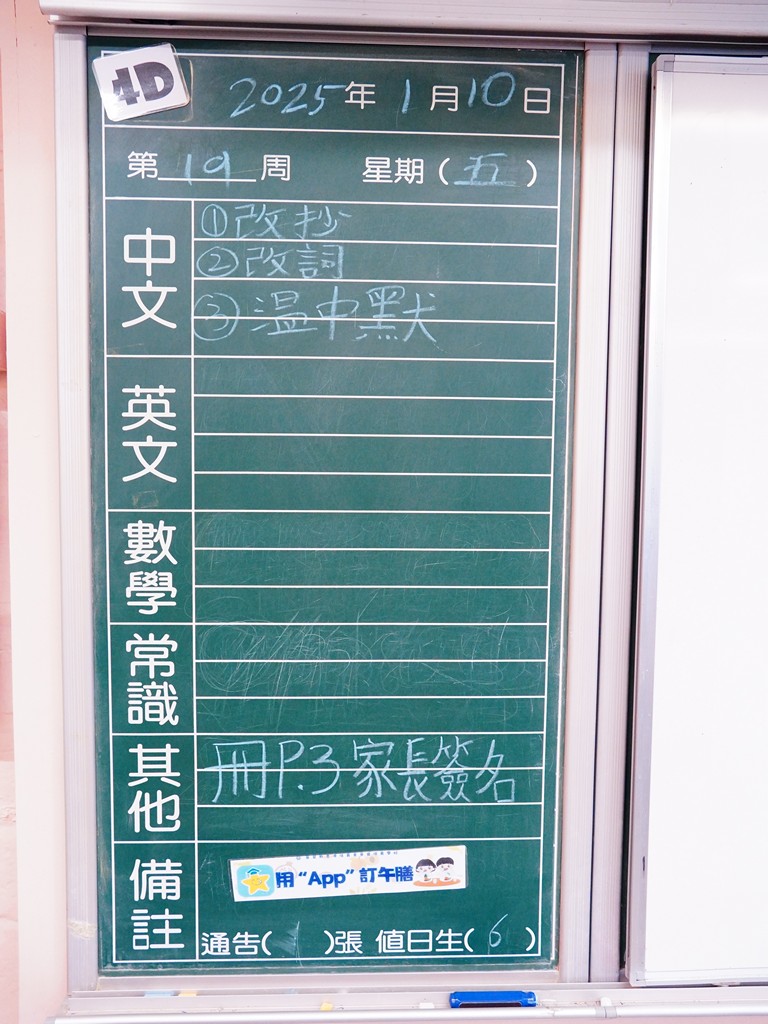 4D
2025年 1月10日
第 19 周 星期(五)
中文
①改抄
②改詞
③溫中默
英文
數學
常識
其他
冊P.3家長簽名
備註
用“App”訂午膳
通告( 1 )張 值日生( 6 )